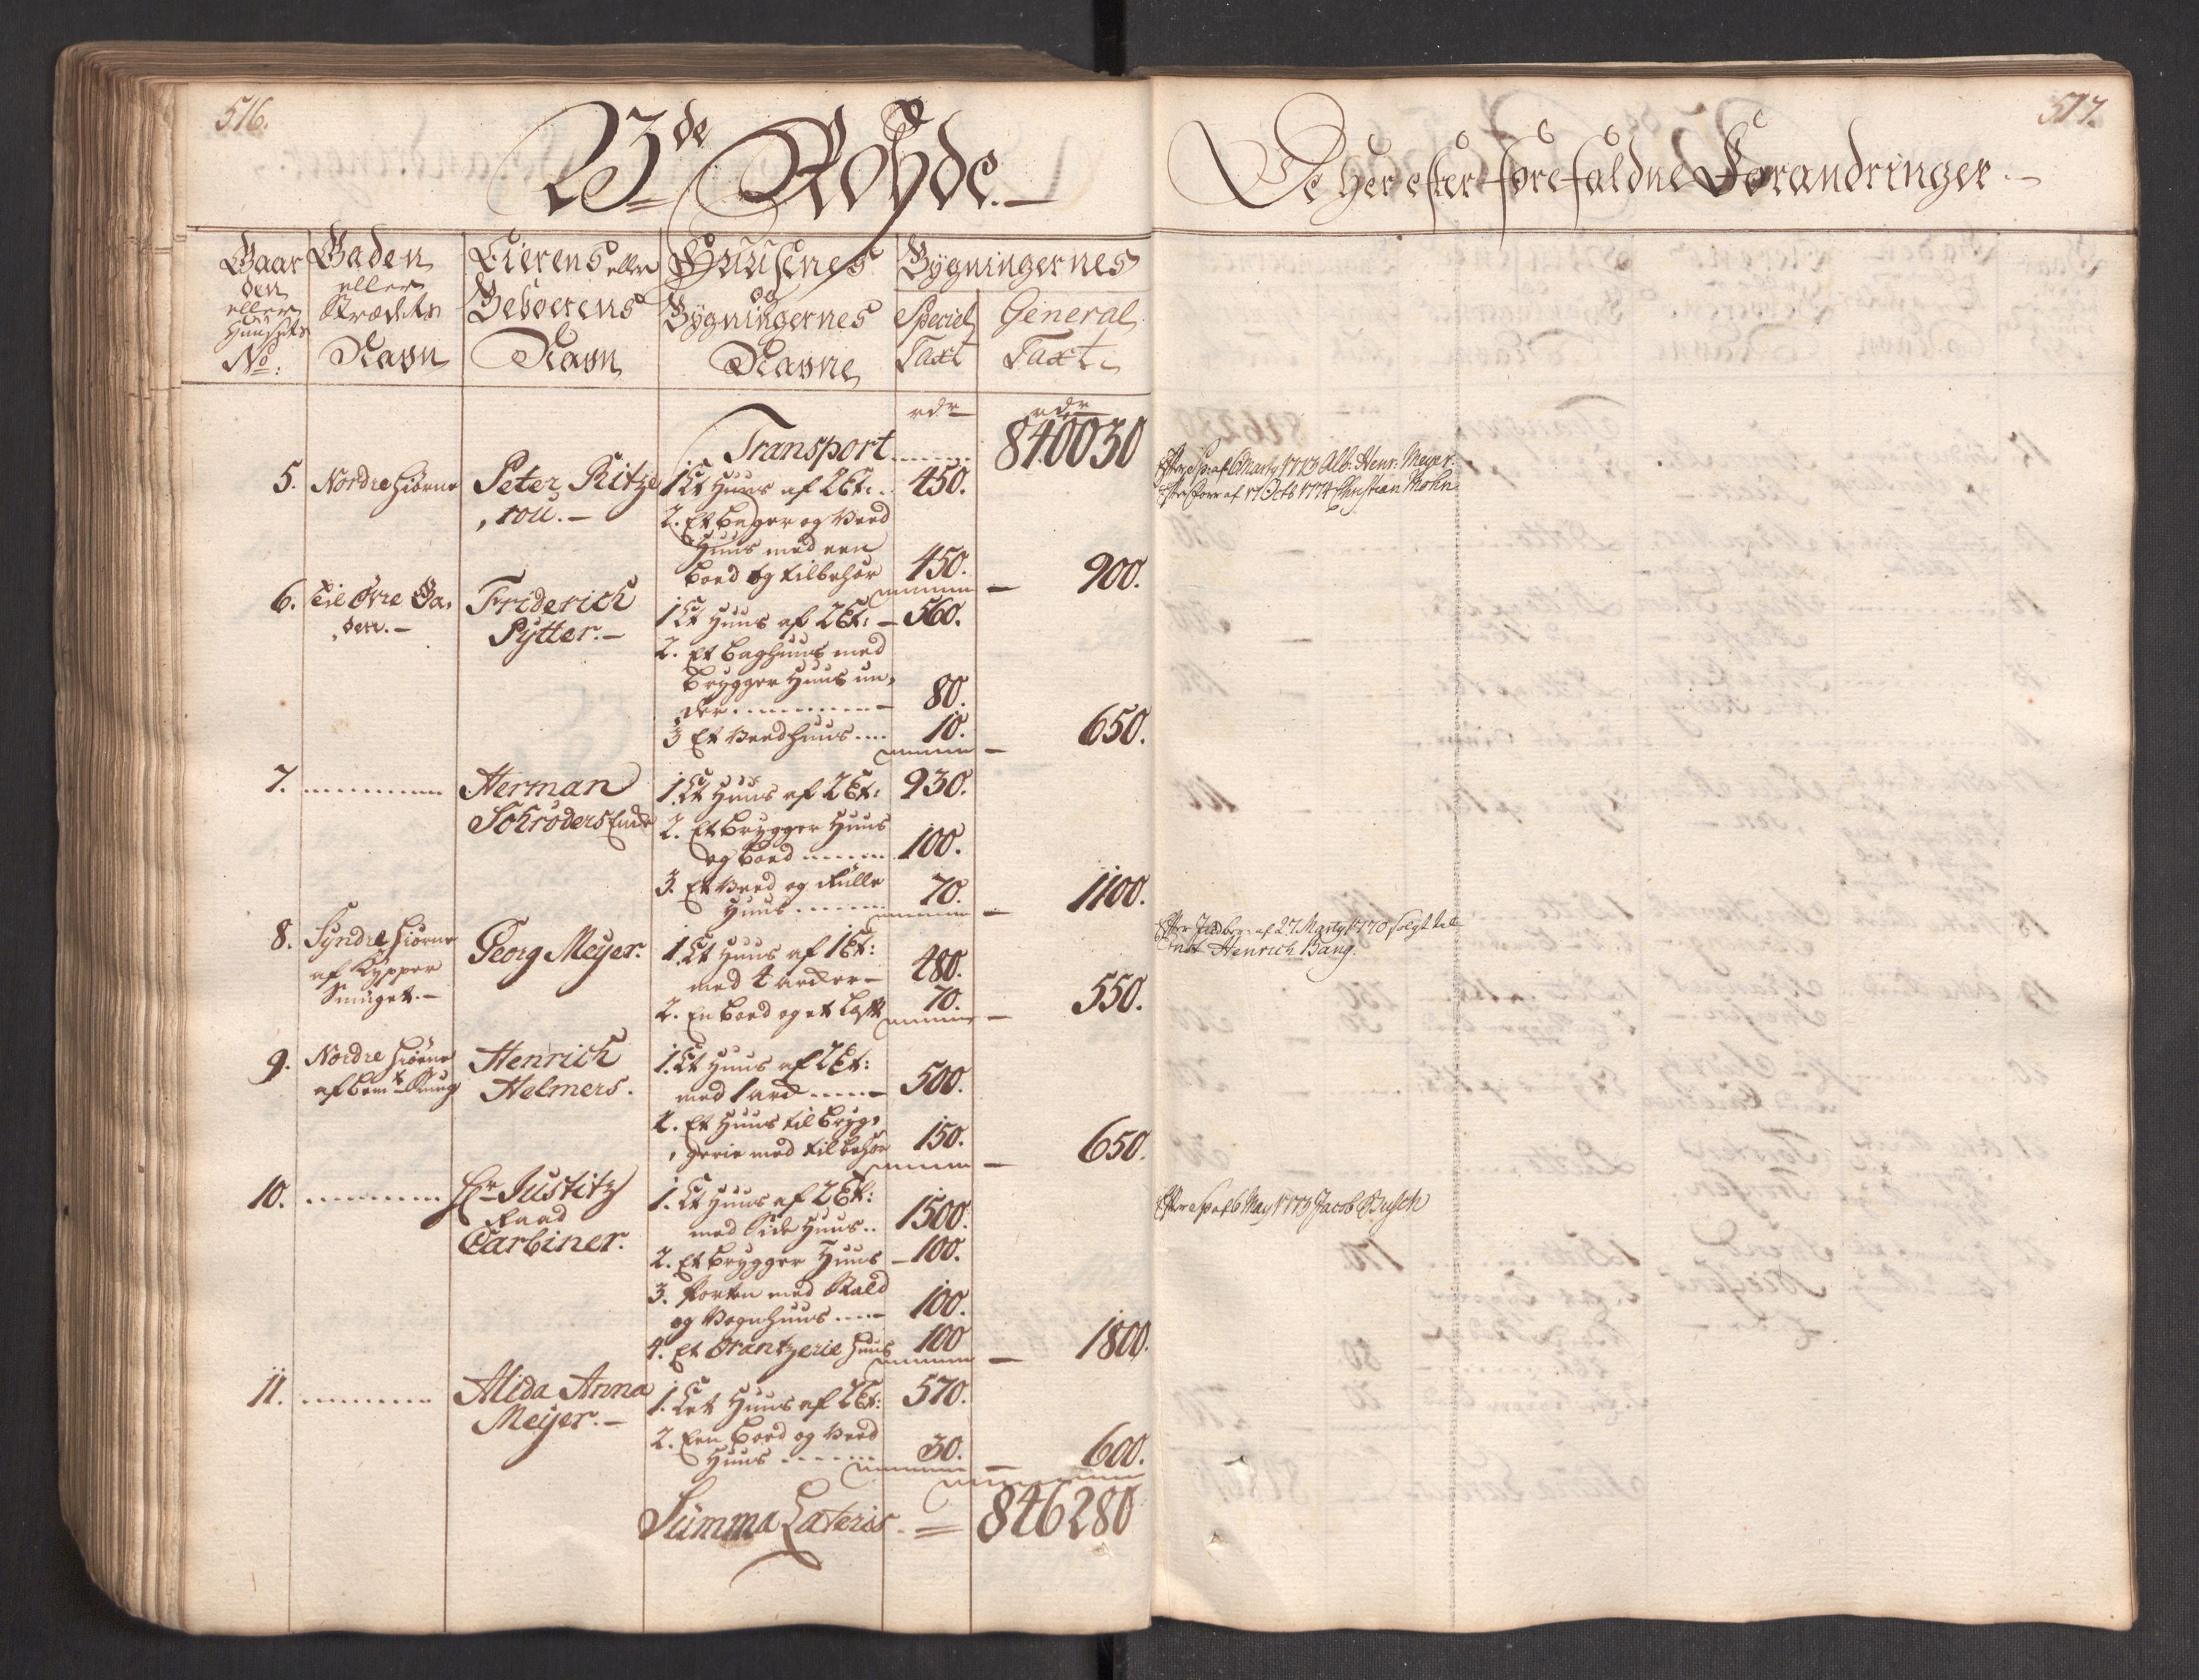 516.
23de Røyde.
Gaar
den
eller
Huusets
No:
Gaden
eller
Strædets
Navn
Eierens eller
Beboerens
Navn
Huusenes
og
Bygningernes
Navne
Bygningernes
Speciel
Taxt
General
Taxt
rdr
rdr
Transport
840030
5. Nordre Hiørne Peter Ritze
rou.
1. Et Huus af 2 Et: 450.
2. Et Bager og Veed
Huus med een
Boed og tilbehør 450. 900.
6. Til Øvre Ga,
den.
Friderich
Pytter.
1. Et Huus af 2 Et: 560.
2. Et Baghuus med
Brygger Huus un,
der 80.
3. Et Veedhuus 10. 650.
7. Herman
Schrøders Enke
1. Et Huus af 2 Et: 930.
2. Et Brygger Huus
og Boed 100.
3. Et Veed og Rulle
Huus 70. 1100.
8. Syndre Hiørne
af Kypper
Smuget.
Georg Meyer.
1. Et Huus af 1 Et:
med 4 arcker 480.
2. En Boed og et Loft 70. 550.
9. Nordre Hiørne
af bemte Smug
Henrich
Helmers.
1. Et Huus af 2 Et:
med 1 arck 500.
2. Et Huus til Bryg,
gerie med tilbehør 150. 650.
10. Hr Justitz
Raad
Carbiner.
1. Et Huus af 2 Et:
med Side Huus 1500.
2. Et Brygger Huus 100.
3. Porten med Stald
og Vognhuus 100.
4. Et Orantzerie Huus 100 1800.
11. Alida Anna
Meyer.
1. Eet Huus af 2 Et: 570.
2. Een Boed og Veed
Huus 30. 600.
Summa Lateris 846280
517.
De her efter forefaldne Forandringer.
Efter Sp: af 6 Marty 1773 Alb: Henr: Meyer.
Efter Forr af 17 Octb 1774 Christian Mohn
Efter Indber: af 27 Marty 1770 solgt til
Henrich Bang.
Efter Sp: af 6 May 1773 Jacob Busch